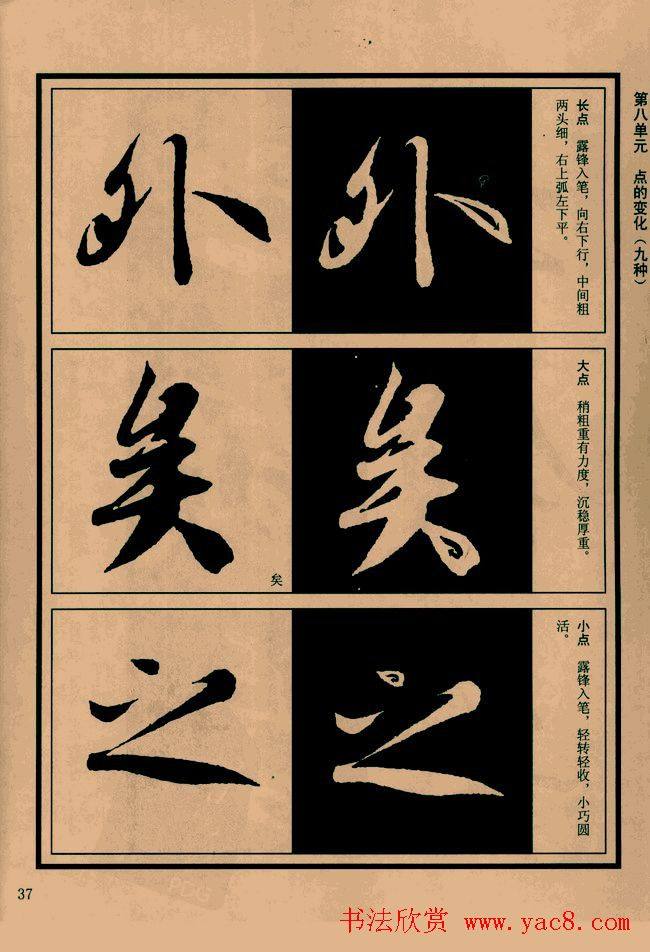 第八单元 点的变化(九种)
外 外
长点 露锋入笔，向右下行，中间粗
两头细，右上弧左下平。
矣 矣
矣
大点 稍粗重有力度，沉稳厚重。
之 之
小点 露锋入笔，轻转轻收，小巧圆
活。
37
书法欣赏 www.yac8.com